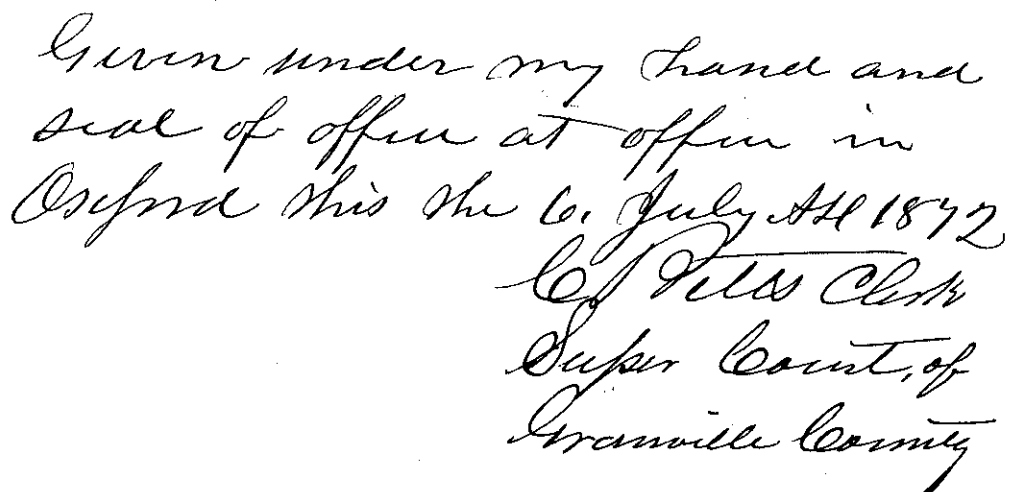 Given under my hand and
seal of office at office in
Oxford this the 6. July AD 1872
C. Betts Clerk
Super Court, of
Granville County